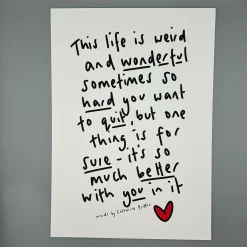 This life is weird
and wonderful
sometimes so
hard you want
to quit, but one
thing is for
sure - it's so
much better
with you in it
words by Catherine